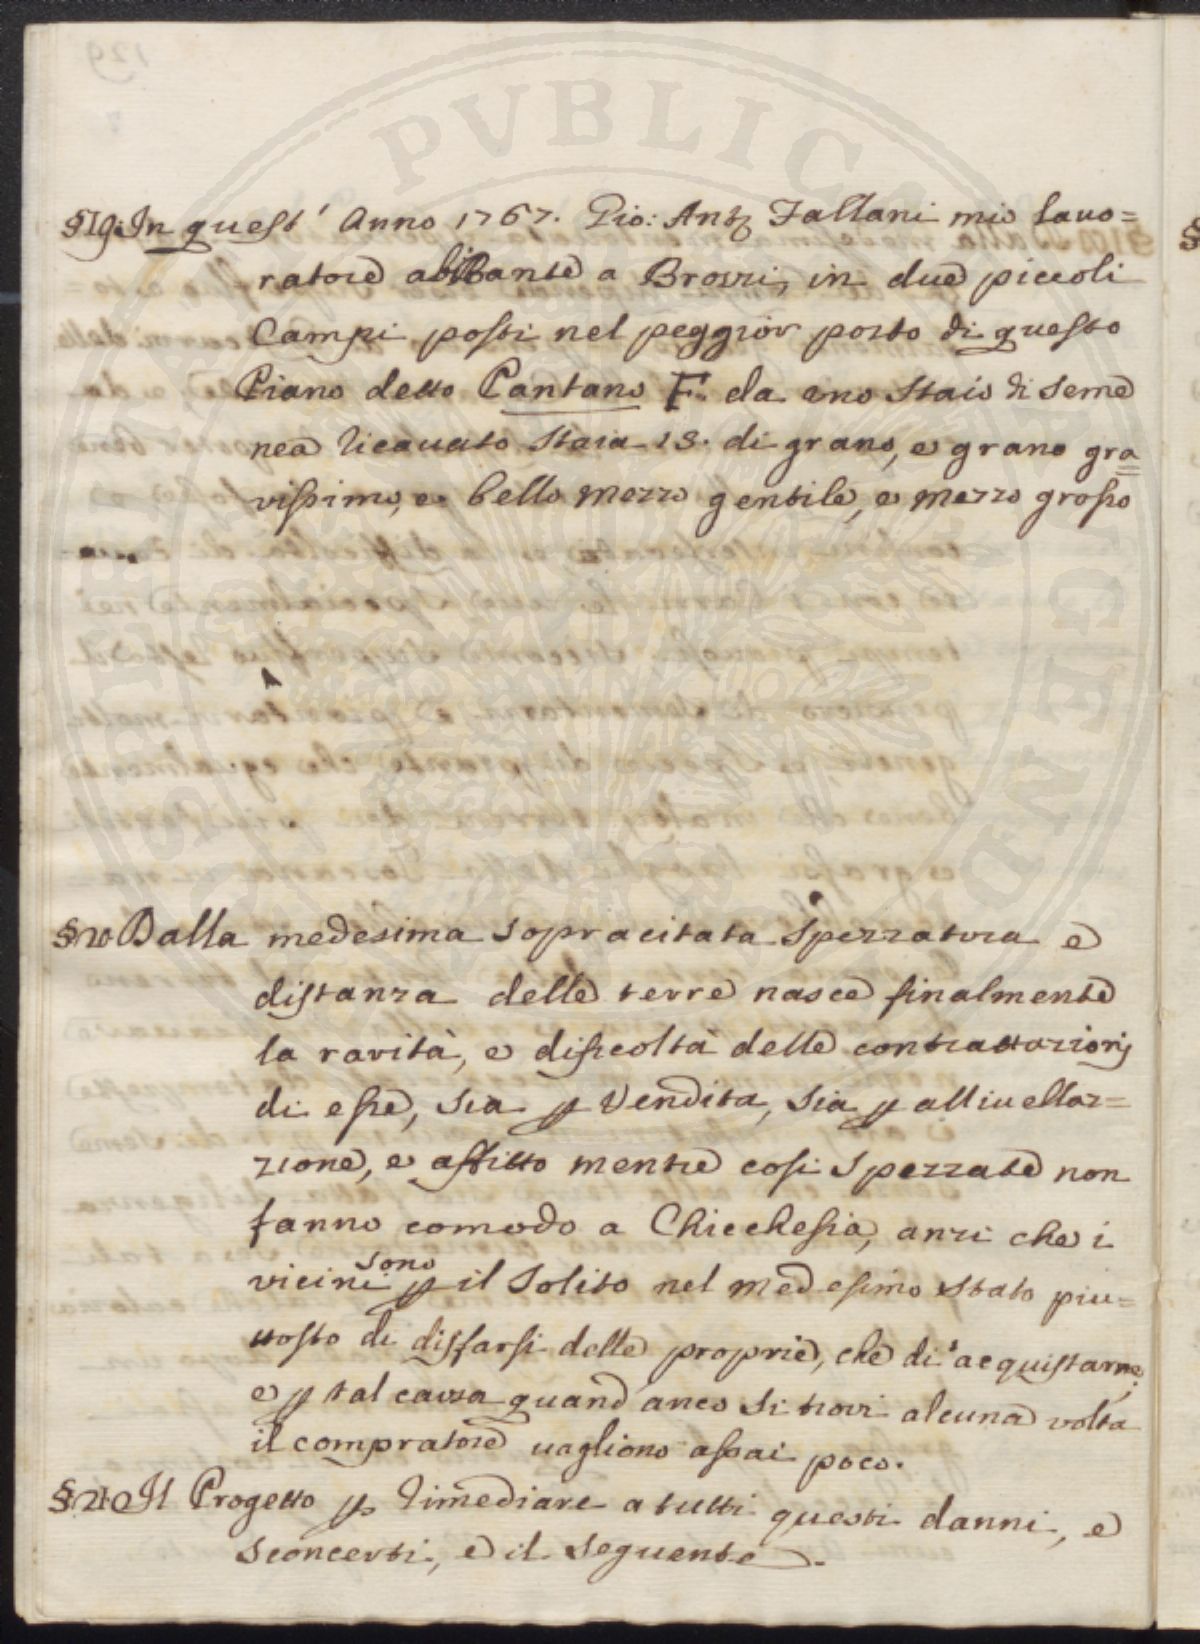 §19. In quest' Anno 1767. Gio: Ant.o Fallani mio lavo=
ratore abitante a Brozzi, in due piccoli
Campi posti nel peggior posto di questo
Piano detto Pantano F. da uno Staio di seme
nea ricavato Staia 18. di grano, e grano gra
vissimo, e bello mezzo gentile, e mezzo grosso
§20 Dalla medesima sopracitata Spezzatura e
distanza delle terre nasce finalmente
la rarità, e dificoltà delle contrattazioni
di esse, sia p Vendita, sia p allivellaz=
zione, e affitto mentre cosi Spezzate non
fanno comodo a Chicchesia, anzi che i
vicini sono p il Solito nel medesimo stato piu=
ttosto di disfarsi delle proprie, che di acquistarne,
e p tal causa quand'anco si trovi alcuna volta
il compratore vagliono assai poco.
§21 Il Progetto p rimediare a tutti questi danni, e
sconcerti, e il seguente.
PVBLICA